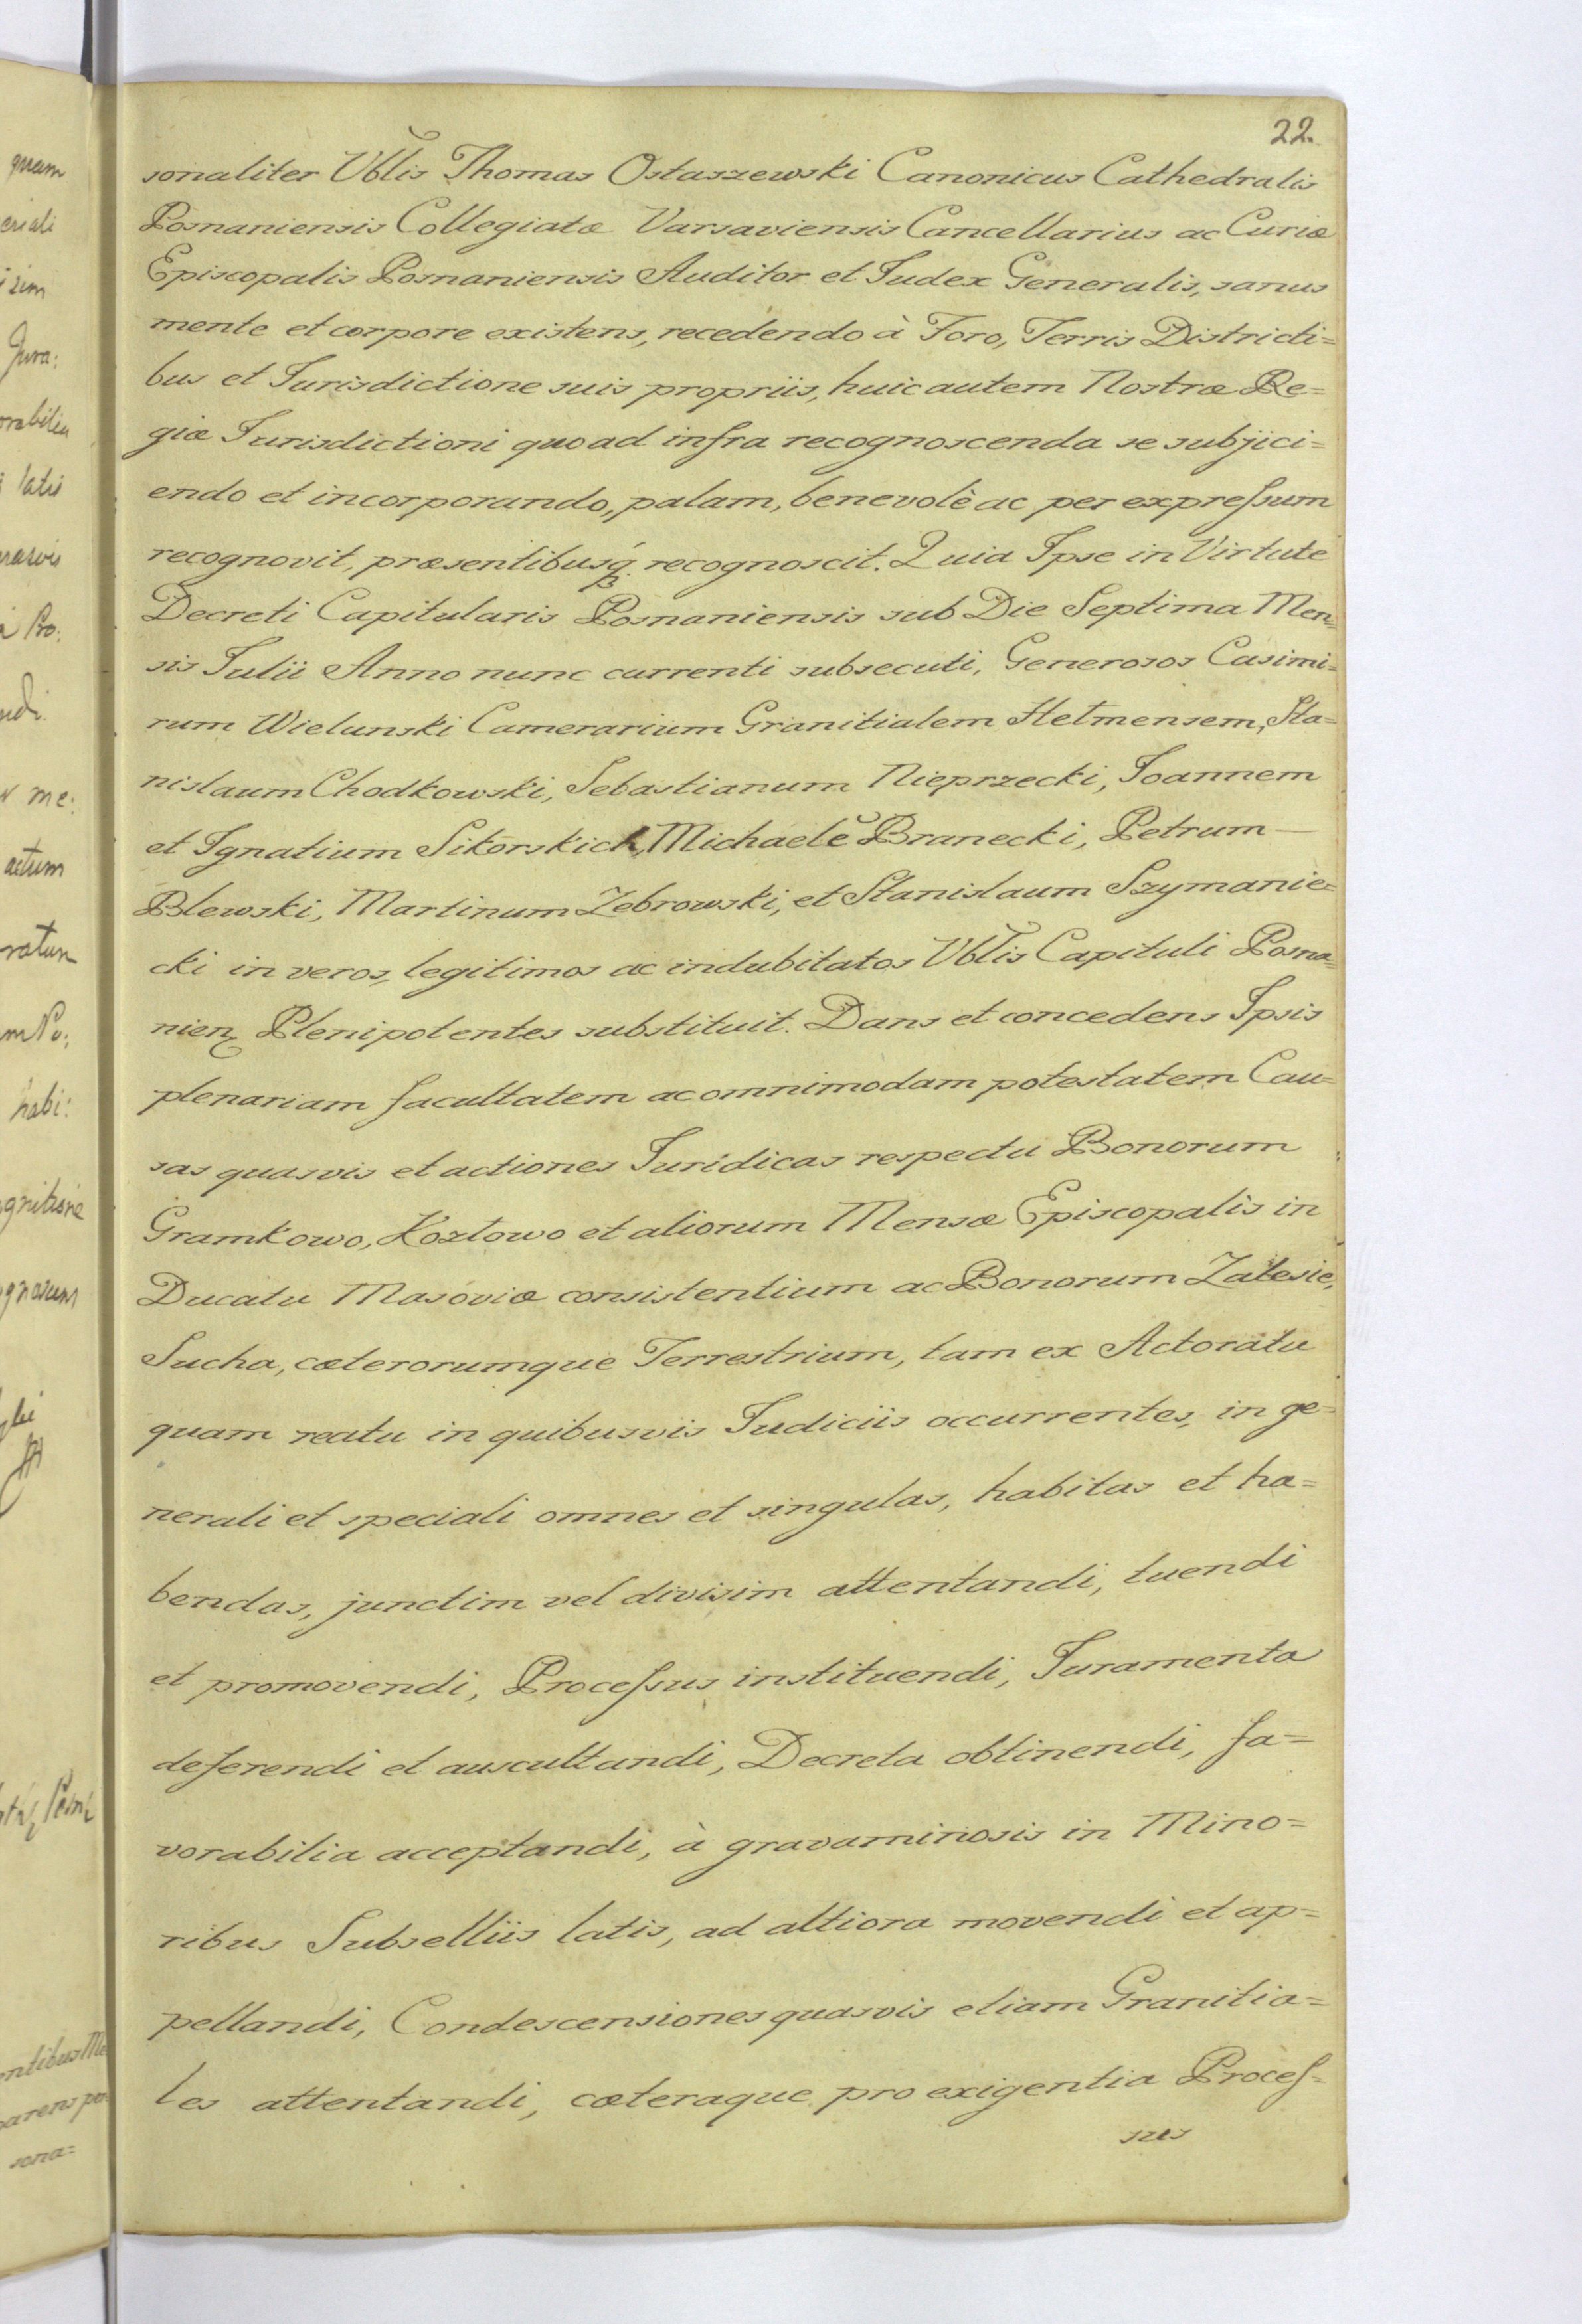 22.
sonaliter Vblis Thomas Ostaszewski Canonicus Cathedralis
Posnaniensis Collegiatæ Varsaviensis Cancellarius ac Curiæ
Episcopalis Posnaniensis Auditor et Iudex Generalis, sanus
mente et corpore existens, recedendo à Foro, Terris Districti=
bus et Iurisdictione suis propriis, huic autem Nostræ Re=
giæ Iurisdictioni quoad infra recognoscenda se subjici=
endo et incorporando, palam, benevolè ac per expreſsum
recognovit, præsentibusq́ recognoscit. Quia Ipse in Virtute
Decreti Capitularis Posnaniensis sub Die Septima Men=
sis Iulii Anno nunc currenti subsecuti, Generosos Casimi=
rum Wielunski Camerarium Granitialem Helmensem, Sta=
nislaum Chodkowski, Sebastianum Nieprzecki, Ioannem
et Ignatium Sikorskich, Michaelē Branecki, Petrum
Plewski, Martinum Zebrowski, et Stanislaum Szymanie=
cki in veros, legitimos ac indubitatos Vblis Capituli Posna=
nien Plenipotentes substituit. Dans et concedens Ipsis
plenariam facultatem ac omnimodam potestatem Cau=
sas quasvis et actiones Iuridicas respectu Bonorum
Gramkowo, Kozłowo et aliorum Mensæ Episcopalis in
Ducatu Masoviæ consistentium ac Bonorum Zalesie,
Sucha, cæterorumque Terrestrium, tam ex Actoratu
quam reatu in quibusvis Iudiciis occurrentes, in ge=
nerali et speciali omnes et singulas, habitas et ha=
bendas, junctim vel divisim attentandi, tuendi
et promovendi, Proceſsus instituendi, Iuramenta
deferendi et auscultandi, Decreta obtinendi, fa=
vorabilia acceptandi, à gravaminosis in Mino=
ribus Subselliis latis, ad altiora movendi et ap=
pellandi, Condescensiones quasvis etiam Granitia=
les attentandi, cæteraque pro exigentia Proceſ=
sus